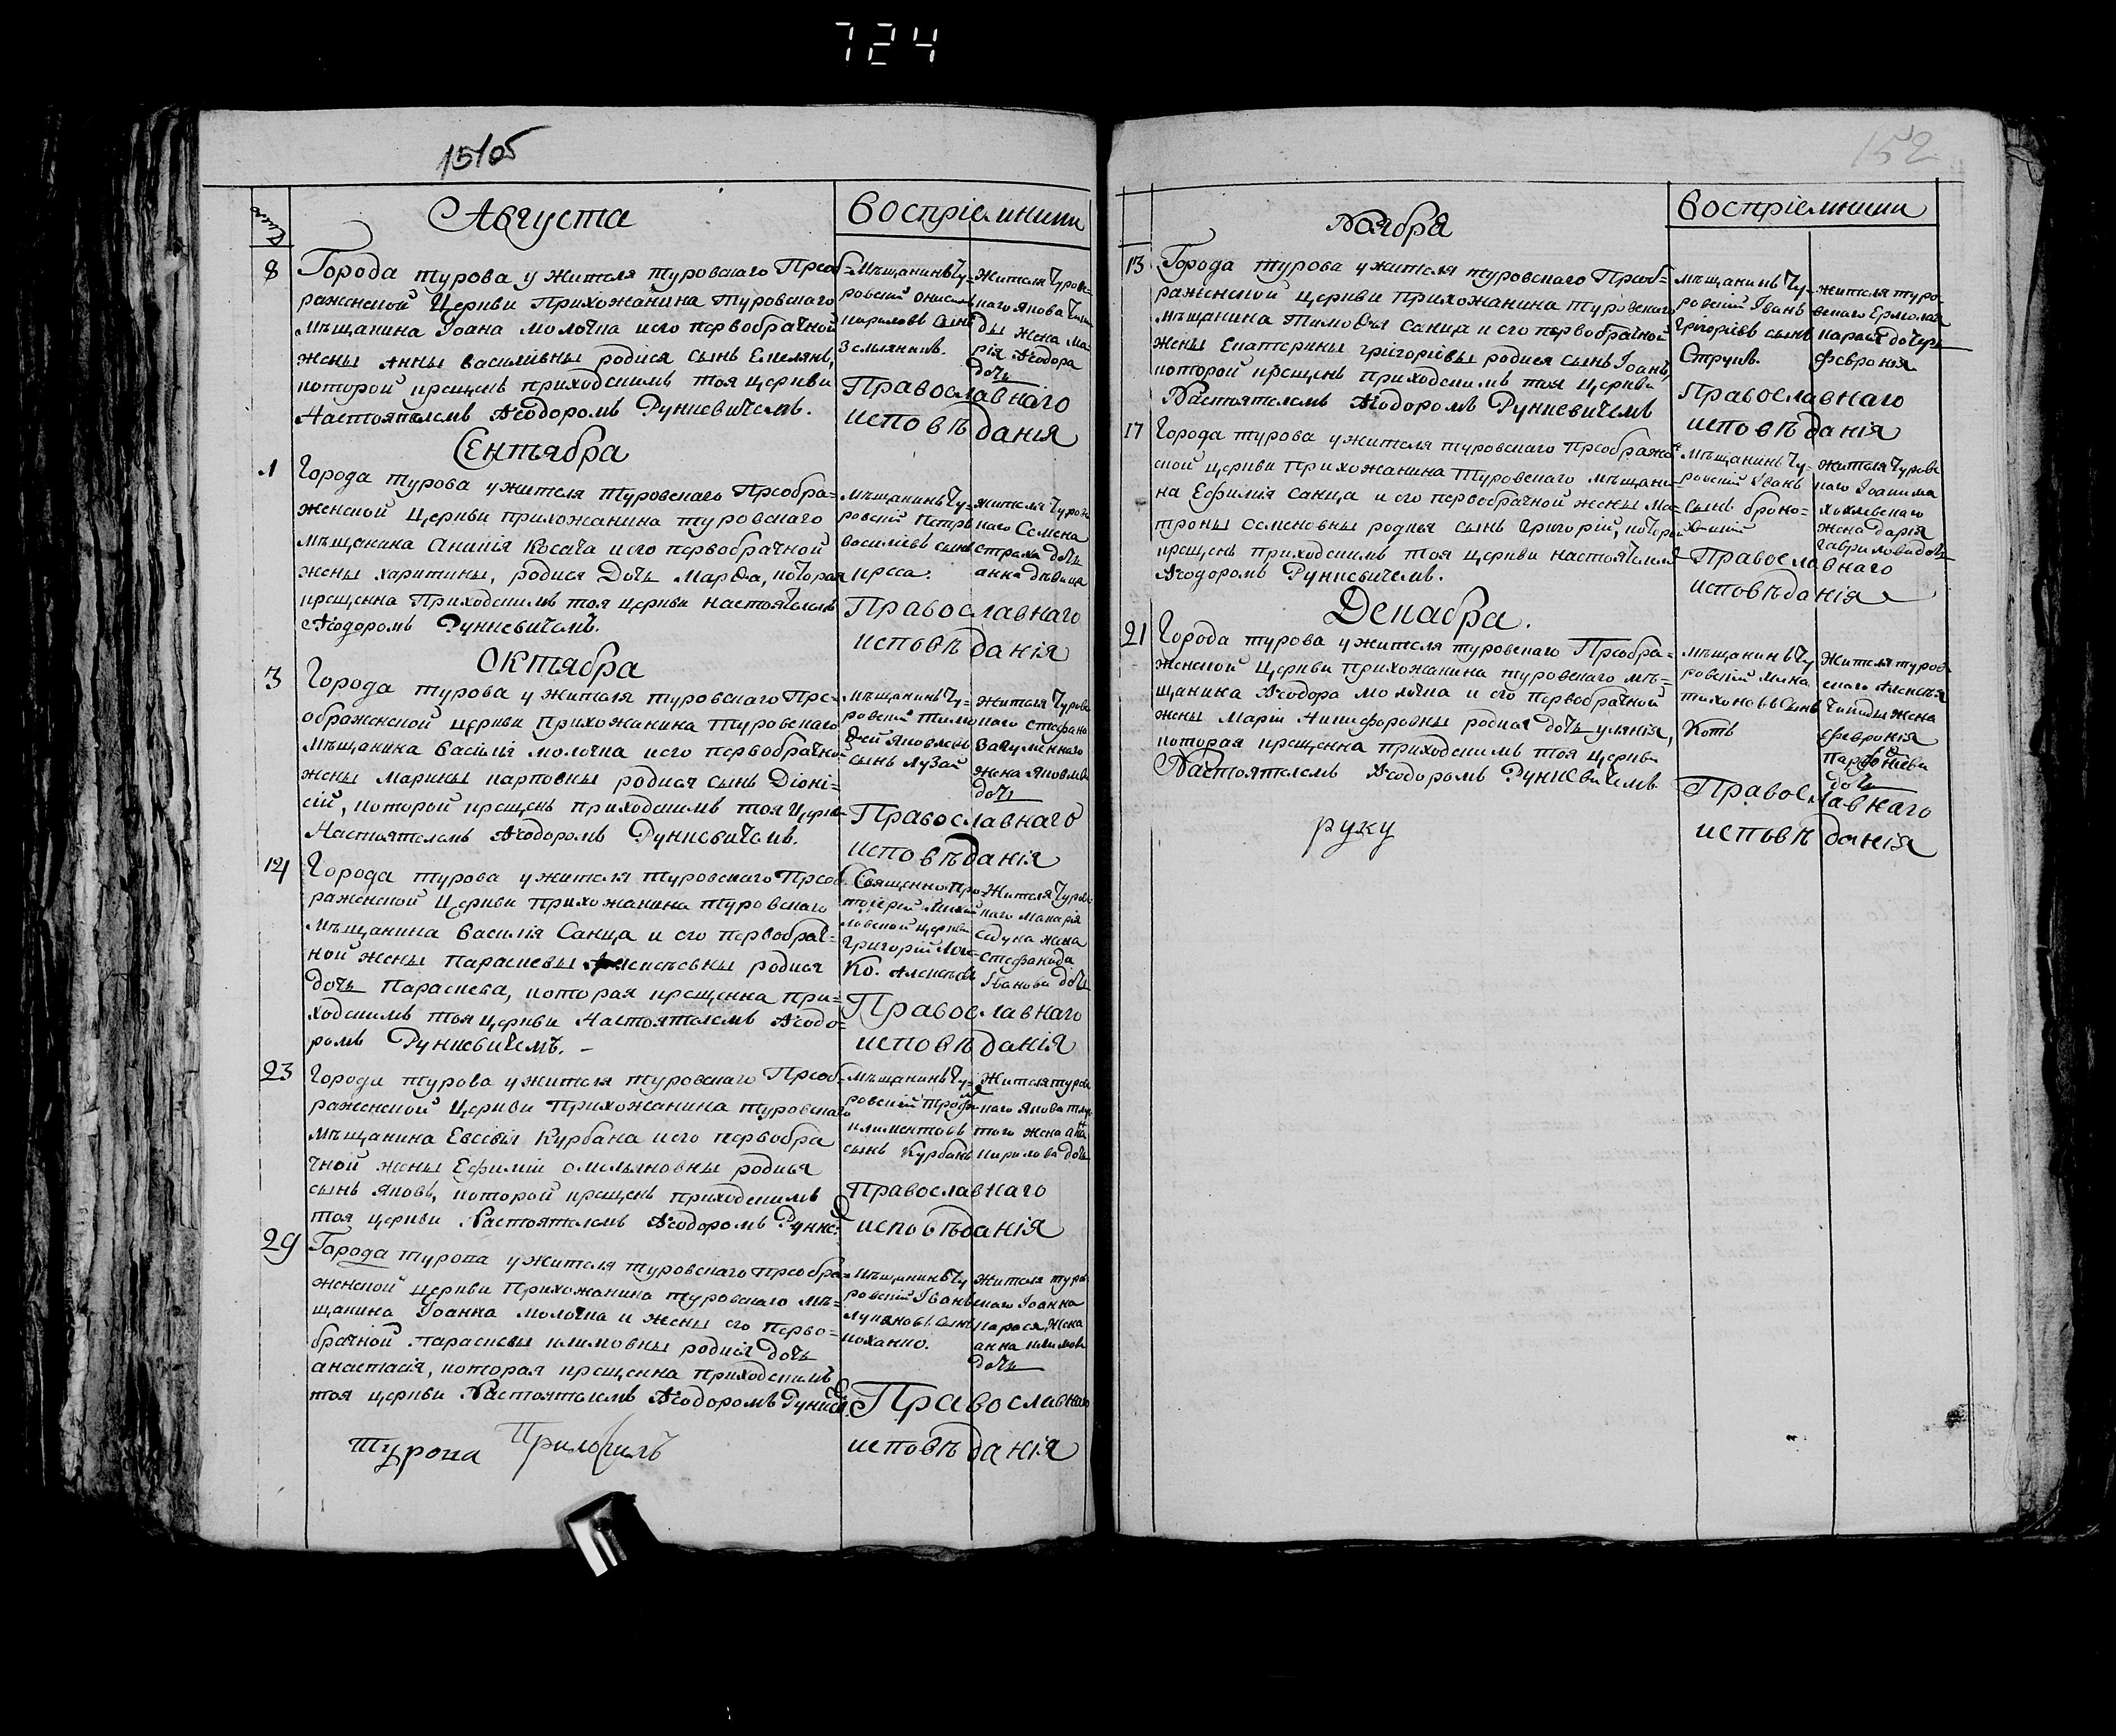 724
151об
Число
Августа
Воспріемники
8
Города турова у жителя туровскаго Преоб=
раженской Церкви Прихожанина Туровскаго
мѣщанина Іоана молочка иего первобрачной
жены Анны василівны родися сынъ Емелянъ,
которой крещенъ приходскимъ тоя церкви
Настоятелемъ Ѳеодоромъ Рункевичемъ.
Мѣщанинъ Ту-
ровский
кириловъ сынъ
Земляникъ.
Жителя Туровс-
каго Якова
ды жена Ма
рія Ѳеодора
дочь
Православнаго
исповѣданія
Сентября
1
Города турова ужителя Туровскаго Преобра=
женской Церкви прихожанина туровскаго
мѣщанина Ананія Косача иего первобрачной
жены харитины, родися Дочь Марѳа, которая
крещенна Приходскимъ тоя церкви настоятелемъ
Ѳеодоромъ Рункевичемъ.
Мѣщанинъ Ту-
ровскій Петръ
василіевъ сынъ
креса.
жителя Туровс
каго Семена
страха дочь
анна дѣвица
Православнаго
исповѣданія
Октября
3
Города турова у жителя туровскаго Пре-
ображенской церкви прихожанина Туровскаго
Мѣщанина василія молочка иего первобрачной
жены Марины карповны родися сынъ Діоні-
сій, которой крещенъ приходскимъ тоя Церкви
Настоятелемъ Ѳеодоромъ Рункевичемъ.
Мѣщанинъ Ту-
ровский Тимо
ѳей яковлевъ
сынъ лузай
жителя Туровс
каго стефана
Загуменнаго
жена яковлева
дочь
Православнаго
исповѣданія
14
Города турова ужителя туровскаго Преоб
раженской Церкви прихожанина туровскаго
Мѣщанина Василія Санца и его первобрач=
ной жены параскевы Алексѣевны родися
дочь параскева, которая крещенна при=
ходскимъ тоя церкви Настоятелемъ Ѳеодо=
ромъ Рункевичемъ. –
Священно Про-
тоіерей Михай
ловской церкви
Григорій
Ко. Алексѣевъ
Жителя Туровс
каго макарія
Седуна жена
стефанида
Іванова дочь
Православнаго
исповѣданія
23
Города турова ужителя туровскаго Преоб-
раженской Церкви Прихожанина туровскаго
мѣщанина Евсевія Курбана иего первобра
чной жены Ефиміи омеляновны родися
сынъ яковъ, которой крещенъ приходскимъ
тоя церкви Настоятелемъ Ѳеодоромъ Рунке:
Мѣщанинъ Ту-
ровский Трофи
климентовъ
сынъ Курбанъ
Жителя туровс
каго якова
того жена анна
кирилова дочь
Православнаго
исповѣданія
29
Города турова ужителя туровскаго преобра=
женской церкви Прихожанина туровскаго мѣ=
щанина Іоанна молочка и жены его перво=
брачной параскевы климовны родися дочь
анастасія, которая крещенна приходскимъ
тоя церкви Настоятелемъ Ѳеодоромъ Рункев:
Мѣщанинъ Ту
ровский Іванъ
лукяновъ сынъ
коханко.
Жителя туров
скаго Іоанна
карася жена
анна климова
дочь
Православнаго
исповѣданія
турова Приложилъ
152
Ноября
Воспріемники
13
Города турова ужителя туровскаго Преоб-
раженской церкви прихожанина туровскаго
мѣщанина Тимоѳея Санца и его первобрачной
жены Екатерины григоріевы родися сынъ Іоанъ,
которой крещенъ приходскимъ тоя церкви
Настоятелемъ Ѳеодоромъ Рункевичемъ
мѣщанинъ Ту-
ровский Іванъ
Григоріевъ сынъ
Струкъ.
жителя туро
вскаго Ермолая
карася дочерь
февронія
Православнаго
исповѣданія
17
Города турова ужителя туровскаго преображен
ской церкви прихожанина Туровскаго мѣщани-
на Ефимія Санца и его первобрачной жены Ма-
троны Семеновны родися сынъ Григорій, которой
крещенъ приходскимъ тоя церкви настоятелемъ
Ѳеодоромъ Рункевичемъ.
Мѣщанинъ Ту-
ровский Іванъ
сынъ броно=
жителя Туровс
каго Іоакима
хохлевскаго
жена дарія
гаврилова дочь
Православнаго
исповѣданія
Декабря.
21
Города турова ужителя туровскаго Преобра=
женской Церкви прихожанина туровскаго мѣ=
щанина Ѳеодора молочка и его первобрачной
жены Маріи Никифоровны родися дочь улянія,
которая крещенна приходскимъ тоя церкви
Настоятелемъ Ѳеодоромъ Рункевичемъ
мѣщанинъ Ту
ровский мина
тихоновъ сынъ
Котъ
Жителя туров
скаго Алексѣя
жена
февронія
дочь
Православнаго
исповѣданія
руку